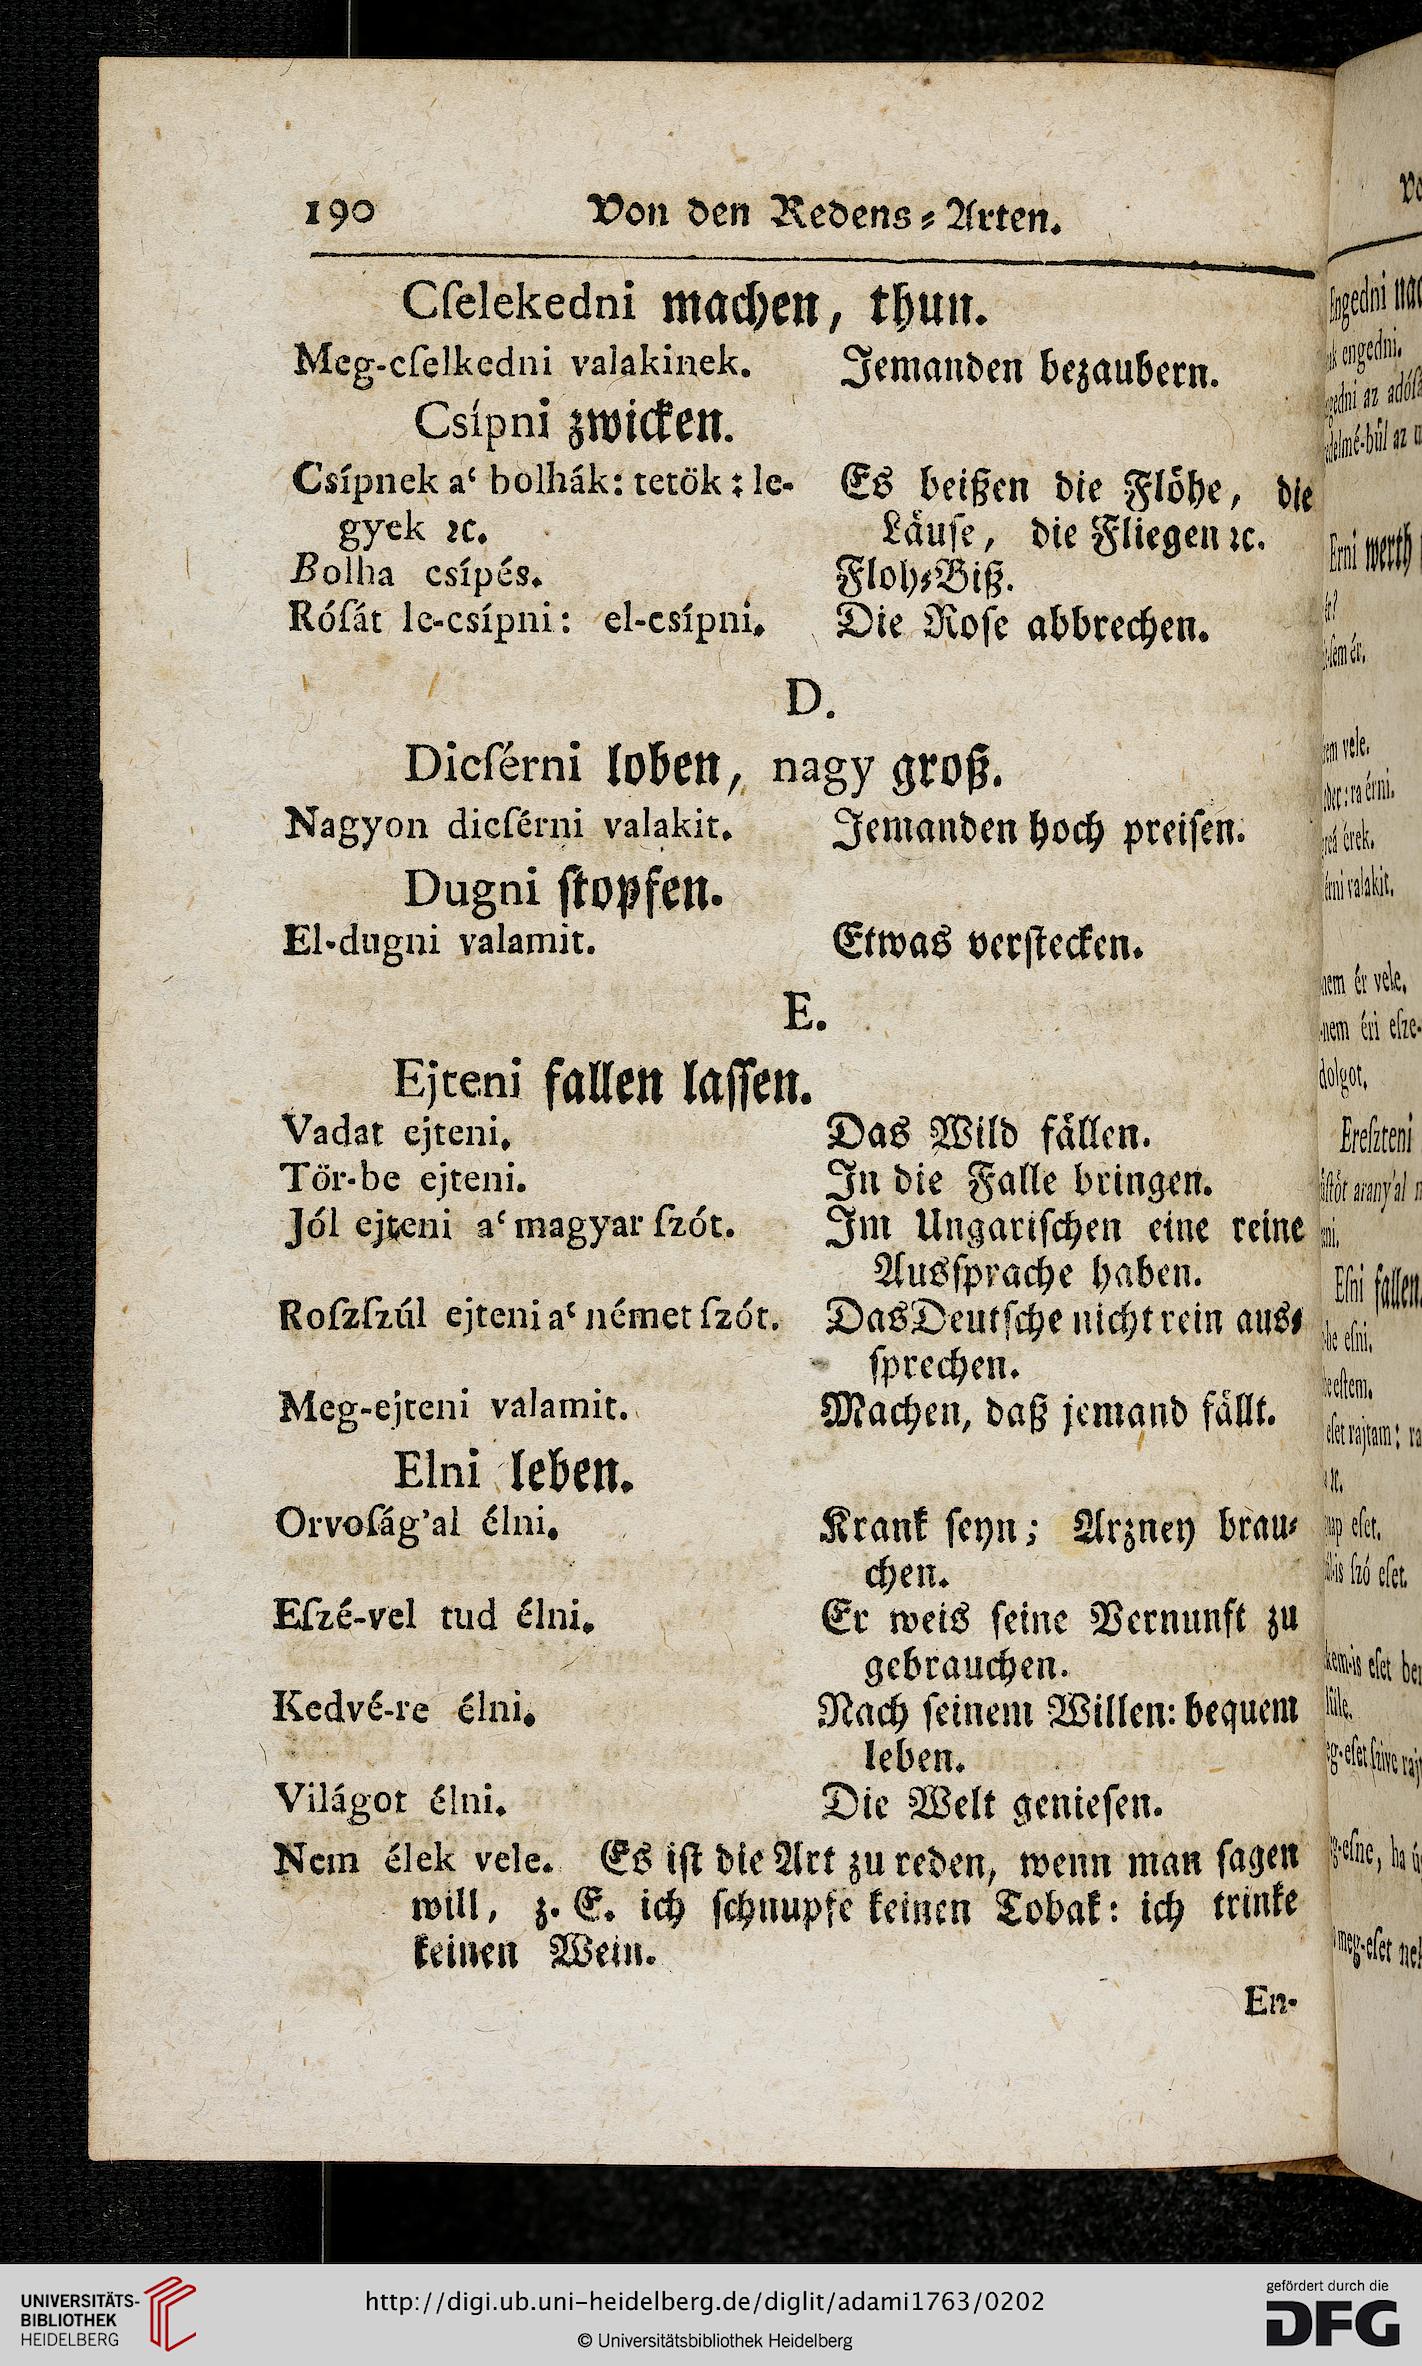 190 Von den Redens⸗Arten.
Cſelekedni machen, thun.
Meg-cſelkedni valakinek. Jemanden bezaubern.
Csípni zwicken.
Csípnek a‘ bolhák: tetök: le- Es beißen die Flöhe, die
gyek ꝛc. Läuſe, die Fliegen ꝛc.
Bolha csípés. Floh⸗Biß.
Róſát le-csípni: el-csípni. Die Roſe abbrechen.
D.
Dicſérni loben, nagy groß.
Nagyon dicſérni valakit. Jemanden hoch preiſen.
Dugni ſtopfen.
El-dugni valamit. Etwas verſtecken.
E.
Ejteni fallen laſſen.
Vadat ejteni. Das Wild fällen.
Tör-be ejteni. In die Falle bringen.
Jól ejteni a‘ magyar ſzót. Im Ungariſchen eine reine
Ausſprache haben.
Roſzſzúl ejteni a‘ német ſzót. Das Deutſche nicht rein aus⸗
ſprechen.
Meg-ejteni valamit. Machen, daß jemand fällt.
Elni leben.
Orvoſág’al élni. Krank ſeyn; Arzney brau⸗
chen.
Eſzé-vel tud élni. Er weis ſeine Vernunft zu
gebrauchen.
Kedvé-re élni. Nach ſeinem Willen: bequem
leben.
Világot élni. Die Welt genieſen.
Nem élek vele. Es iſt die Art zu reden, wenn man ſagen
will, z. E. ich ſchnupfe keinen Tobak: ich trinke
keinen Wein.
En-
engedni.
az
Erni werth
vele.
érek.
valakit.
ér vele.
éri eſze-
dolgot.
Ereſzteni
arany'al
Eſni fallen
eſni.
eſet.
ſzó eſet.
eſet
UNIVERSITÄTS-
BIBLIOTHEK
HEIDELBERG
http://digi.ub.uni-heidelberg.de/diglit/adami1763/0202
© Universitätsbibliothek Heidelberg
gefördert durch die
DFG